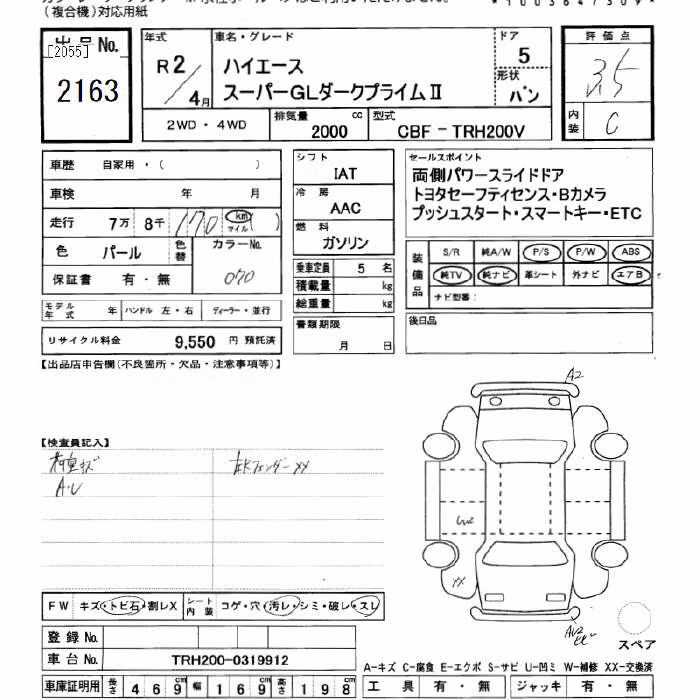 （複合機）対応用紙
出品No.
[2055]
2163
年式
R2/4月
車名・グレード
ハイエース
スーパーGLダークプライムⅡ
ドア
5
形状
バン
評価点
3.5
内装
C
2WD・4WD
排気量
2000 cc
型式
CBF－TRH200V
車歴 自家用・（ ）
車検 年 月
走行 7万 8千 170 km マイル
色 パール
色替
カラーNo.
070
保証書 有・無
モデル年式 年 ハンドル 左・右 ディーラー・並行
リサイクル料金 9,550 円 預託済
シフト
IAT
冷房
AAC
燃料
ガソリン
乗車定員 5 名
積載量 kg
総重量 kg
書類期限
月 日
セールスポイント
両側パワースライドドア
トヨタセーフティセンス・Bカメラ
プッシュスタート・スマートキー・ETC
装備品
S/R 純A/W P/S P/W ABS
純TV 純ナビ 革シート 外ナビ エアB
ナビ型番：
後日品
【出品店申告欄（不良箇所・欠品・注意事項等）】
【検査員記入】
荷室キズ
A・U
右Rフェンダーxx
A2
UW2
XX
FW キズ・トビ石・割レX
シート内装 コゲ・穴・汚レ・シミ・破レ・スレ
登録No.
車台No. TRH200-0319912
車庫証明用 長さ 469cm 幅 169cm 高さ 198cm
スペア
A-キズ C-腐食 E-エクボ S-サビ U-凹ミ W-補修 XX-交換済
工具 有・無 ジャッキ 有・無